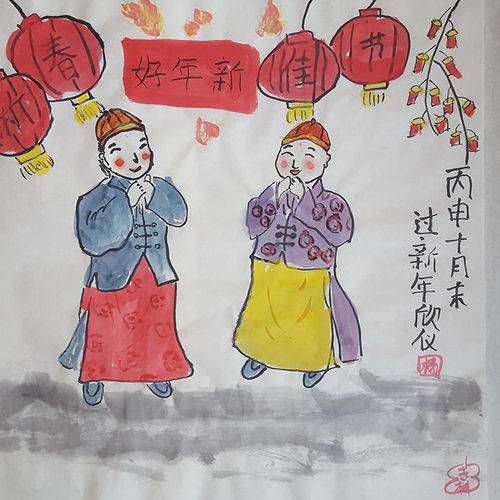 新春佳节
新年好
丙申十月末
过新年欣仪